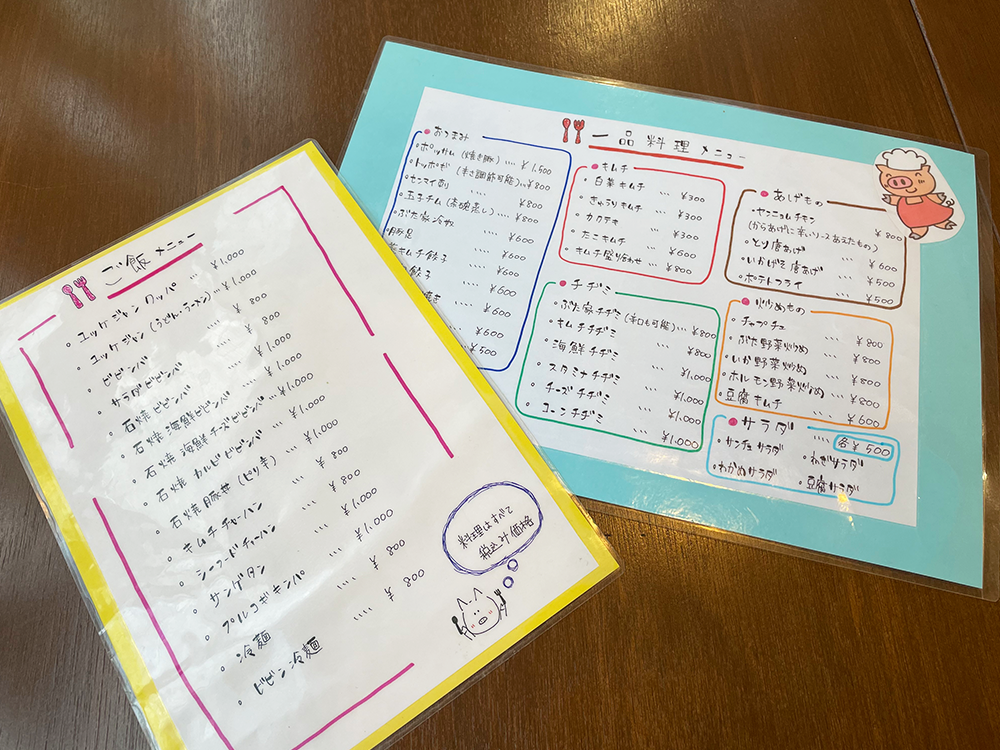 ご飯メニュー
ユッケジャンクッパ ¥1.000
ユッケジャン(うどん・ラーメン)‥ ¥1.000
ビビンバ
サラダビビンバ
石焼ビビンバ
石焼海鮮ビビンバ
石焼海鮮チーズビビンバ
石焼カルビビビンバ
石焼豚丼(ピリ辛)
キムチチャーハン
シーフードチャーハン
サンゲタン
プルコギキンパ
冷麺 ‥‥ ¥ 800
ビビン冷麺 ‥‥ ¥ 800
料理はすべて
税込み価格
一品料理メニュー
おつまみ
ポッサム(焼き豚)‥‥ ¥1,500
トッポギ(辛さ調節可能)‥ ¥800
玉子チム(茶碗蒸し) ¥800
¥800
¥600
豚足 ¥600
キムチ餃子 ¥600
餃子 ¥600
¥600
¥500
キムチ
白菜キムチ ‥‥ ¥300
きゅうりキムチ ‥‥ ¥300
カクテキ ‥‥ ¥300
たこキムチ ‥‥ ¥600
キムチ盛り合わせ ‥‥ ¥800
チヂミ
ぶた家チヂミ(辛口も可能)‥‥ ¥800
キムチチヂミ ‥‥ ¥800
海鮮チヂミ ‥‥ ¥1,000
スタミナチヂミ
チーズチヂミ ‥‥ ¥1,000
コーンチヂミ ‥‥ ¥1,000
あげもの
ヤンニョムチキン ¥800
(からあげに辛いソースあえたもの)
とり唐あげ ‥‥ ¥600
いかげそ唐あげ ‥‥ ¥500
ポテトフライ ‥‥ ¥500
炒めもの
チャプチェ ‥‥ ¥800
ぶた野菜炒め ‥‥ ¥800
いか野菜炒め ‥‥ ¥800
ホルモン野菜炒め ‥‥ ¥800
豆腐キムチ ‥‥ ¥600
サラダ ‥‥ 各¥500
サンチュサラダ ねぎサラダ
わかめサラダ 豆腐サラダ